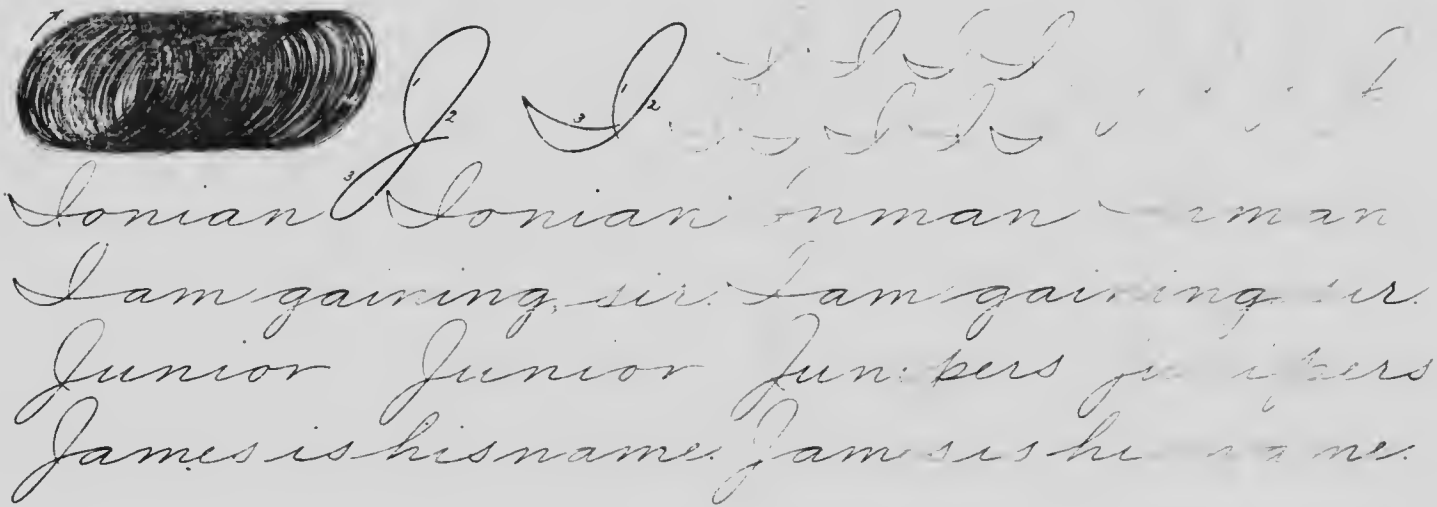 J I
Ionian Ionian Inman
I am gaining, sir. I am gaining sir.
Junior Junior Junipers Junipers
James is his name. James is his name.